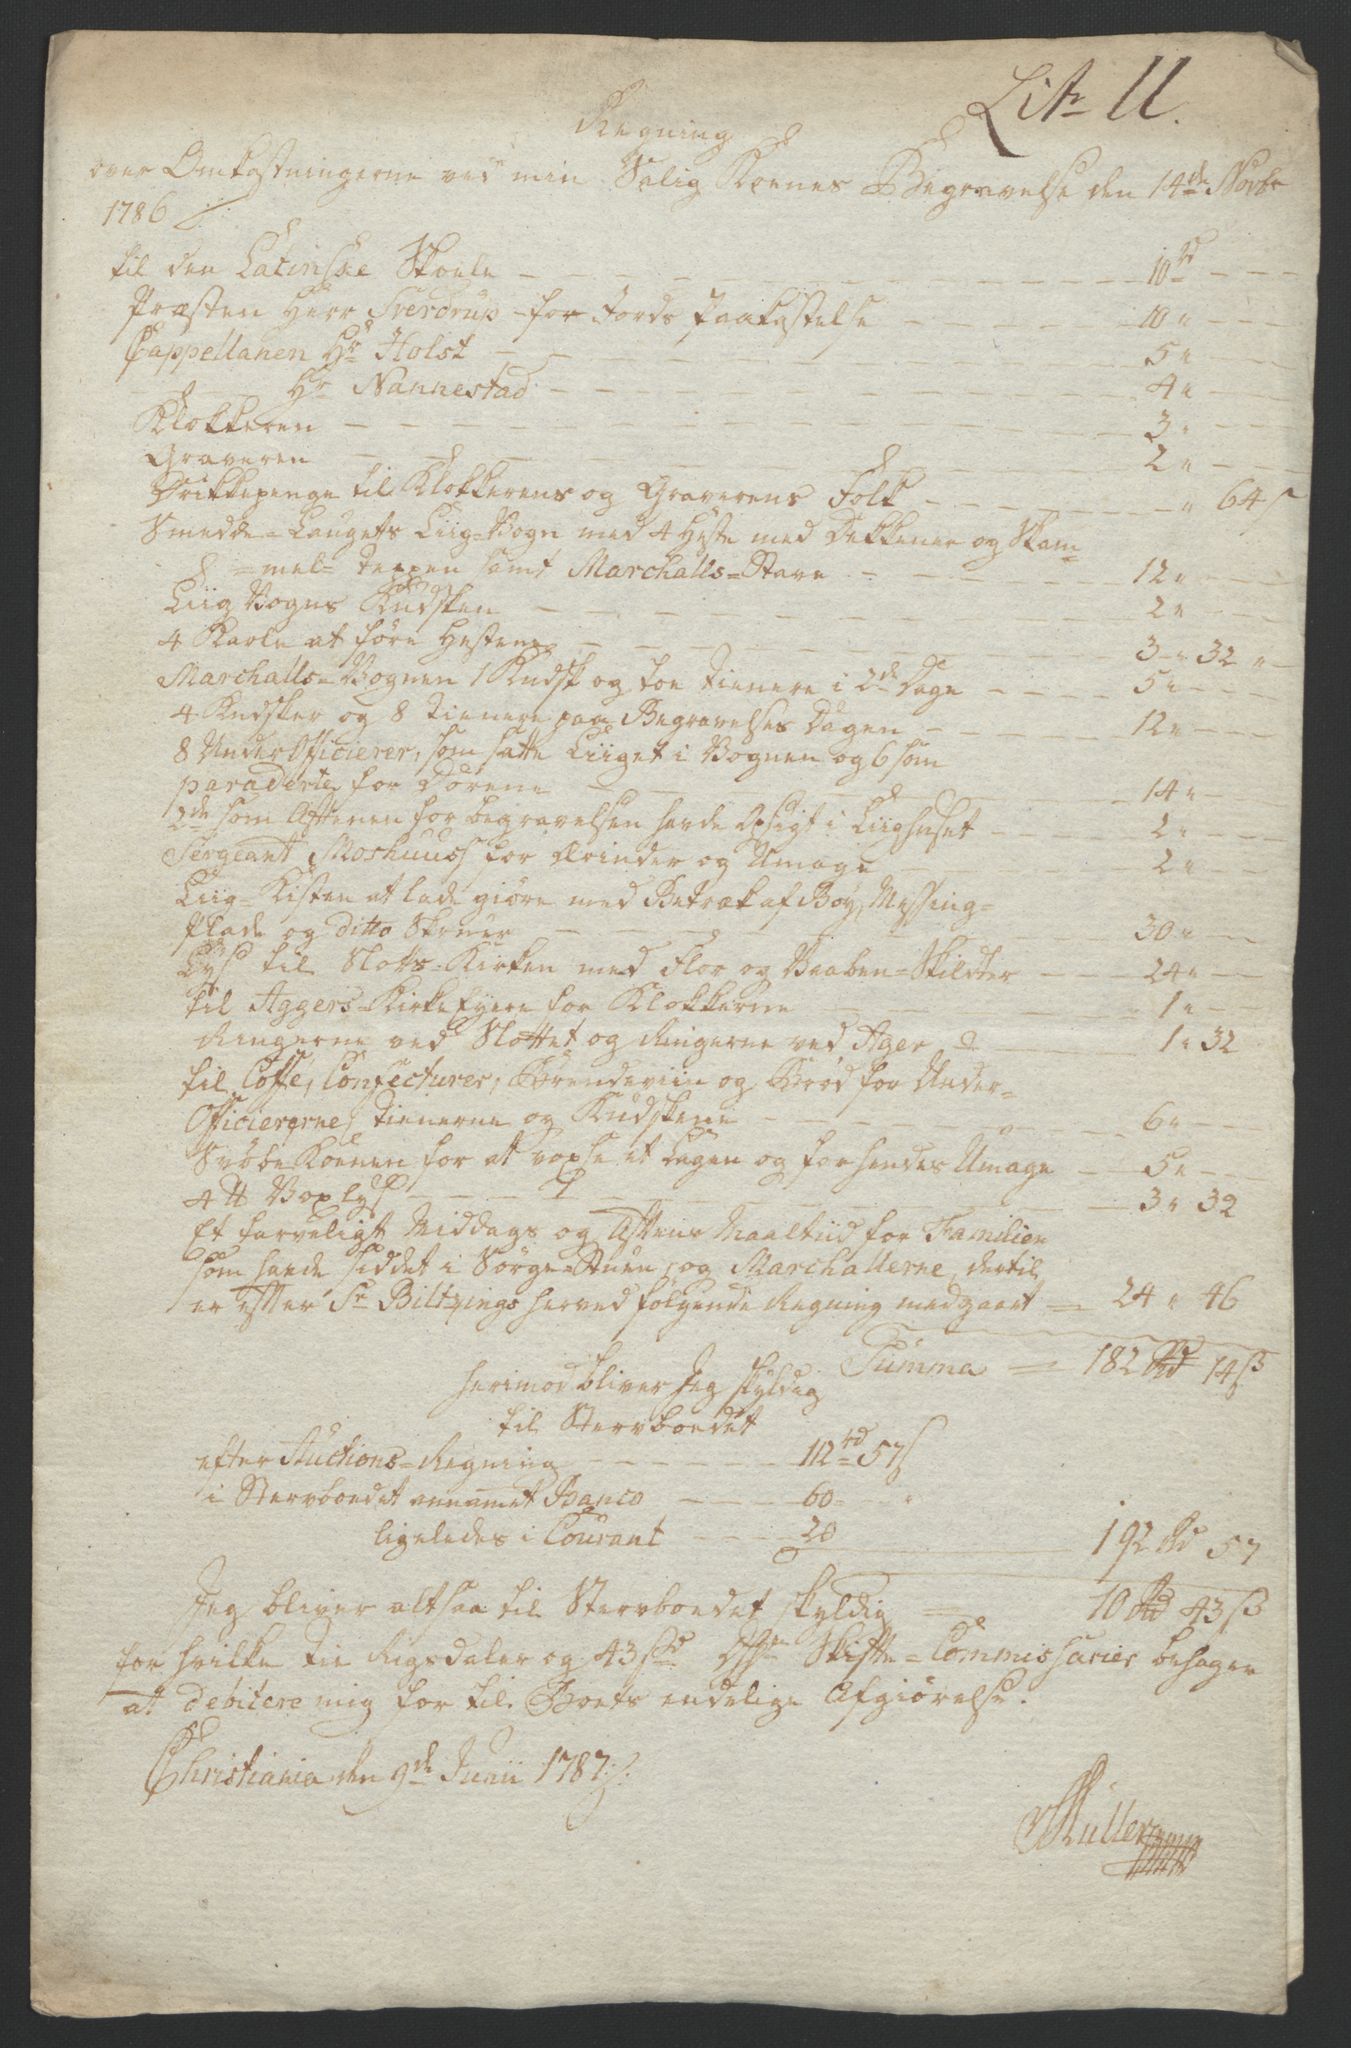 Litr U.
Regning
over Omkostningerne ved min Salig Koenes Begravelse den 14de Novbr
1786
til den Latinske Skoele - 10 rd
Præsten Herr Sverdrup - for Jords Paakastelse - 10 "
Cappellanen Hr Holst - 5 "
Hr Nannestad - 4 "
Klokkeren - 3 "
Graveren - 2 "
Drikkepenge til Klokkerens og Graverens Folk - " 64 s
Smedde-Laugets Liig-Vogn med 4 Heste med Dekkener og Skam-
=mel= teppen samt Marchalls-Stave - 12 "
Liig Vogns Kudsken - 2 "
4 Karle at føre Hestene - 3 " 32 "
Marchalls-Vognen 1 Kudsk og toe tienere i 2de Dage - 5 "
4 Kudsker og 8 tienere paa Begravelses Dagen - 12 "
8 Under Officierer, som satte Liiget i Vognen og 6 som
paraderte for Dørene - 14 "
2de som Aftenen for begravelsen havde Opsigt i Liighuset - 2 "
Sergeant Moshuus for Ærinder og Umage - 2 "
Liig-Kisten at lade giøre med Betræk af Boy, Messing-
Plade og ditto Skruer - 30 "
Lys til Slots-Kirken med Flor og Vaaben-Skildter - 24 "
til Aggers-Kirke for Klokkerne - 1 "
Ringerne ved Slottet og Ringerne ved Ager - 1 " 32
til Coffe, Confecturer, Brendeviin og Brød for Under-
Officiererne, tienerne og Kudskene - 6 "
Svøbe Koenen for at voxe et Lagen og for hendes Umage - 5 "
4 ℔ Vox lys - 3 " 32
Et tarveligt Middags og Aftens Maaltiid for Familien
som havde siddet i Sørge-Stuen, og Marchallerne, dertil
er efter Sr Biltzings herved følgende Regning medgaaet = 24 " 46
Summa = 182 Rd 14 s
herimod bliver Jeg skyldig
til Stervboedet
efter Auctions-Regning - 112 rd 57 s
i Stervboedet annamet Banco - 60 "
ligeledes i Courant - 20
192 Rd 57
Jeg bliver altsaa til Stervboedet skyldig = 10 Rd 43 s
for hvilke tie Rigsdaler og 43 s Skifte-Commissarier behager
at debitere mig for til Boets endelige Afgiørelse.
Christiania den 9de Junii 1787
Müller